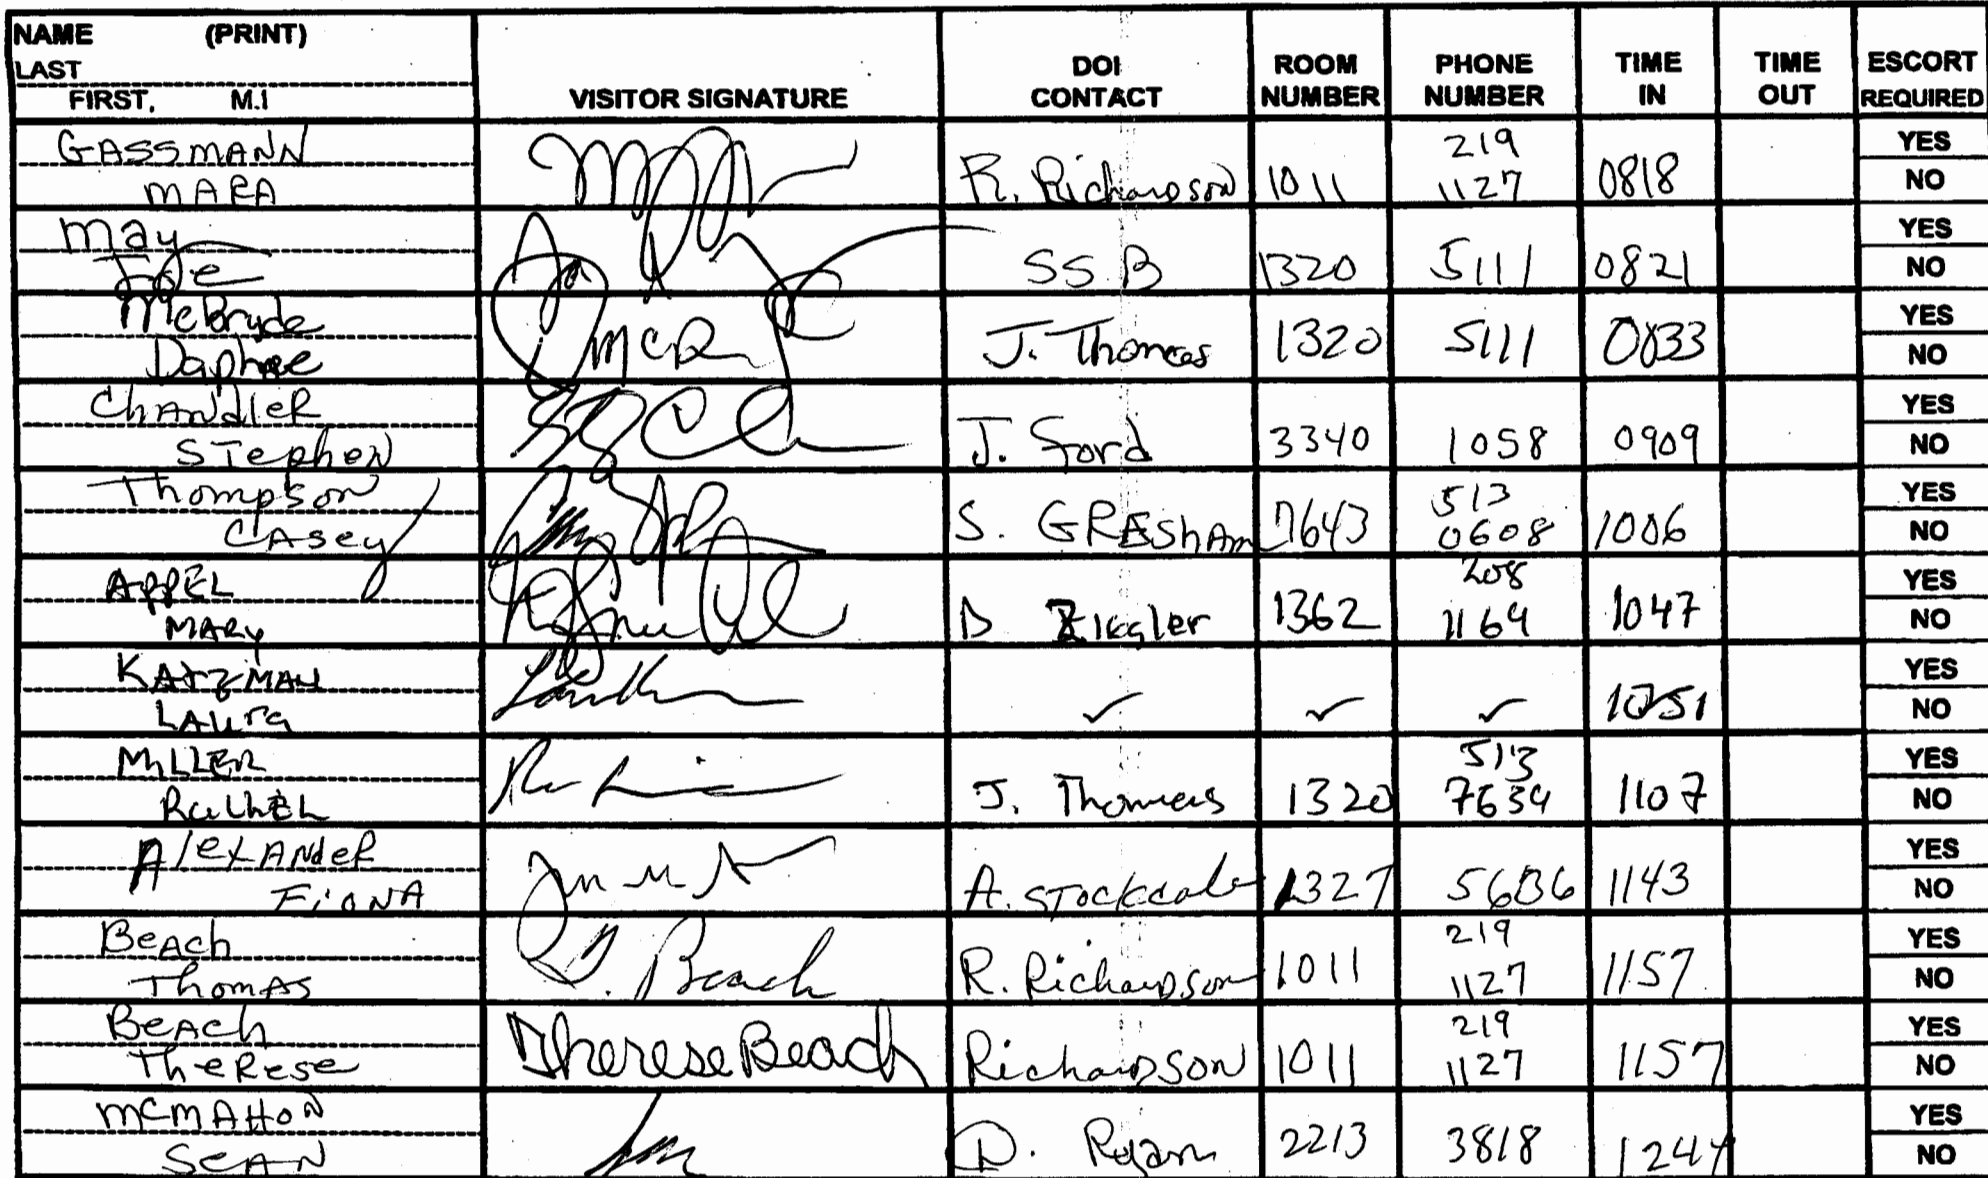 NAME (PRINT)
LAST
FIRST, M.I
VISITOR SIGNATURE
DOI CONTACT
ROOM NUMBER
PHONE NUMBER
TIME IN
TIME OUT
ESCORT REQUIRED
GASSMANN
MARA
R. Richardson 1011 219 1127 0818 YES NO
May
SS.B 1320 5111 0821 YES NO
McBryde
Daphne
McB J. Thomas 1320 5111 0833 YES NO
Chandler
Stephen
J. Ford 3340 1058 0909 YES NO
Thompson
CAsey
S. GREShAm 7643 513 0608 1006 YES NO
APPEL
MARy
D Ziegler 1362 208 1164 1047 YES NO
KATZMAN
LAUra
✓ ✓ ✓ 1051 YES NO
MILLER
RacHEL
J. Thomas 1320 513 7634 1107 YES NO
AlexANdeR
FiONA
A. STockdale 1327 5636 1143 YES NO
BeACh
ThomAS
T. Beach R. Richardson 1011 219 1127 1157 YES NO
BeACh
TheRese
Therese Beach Richardson 1011 219 1127 1157 YES NO
MCMAHON
SeAN
D. Ryan 2213 3818 1244 YES NO